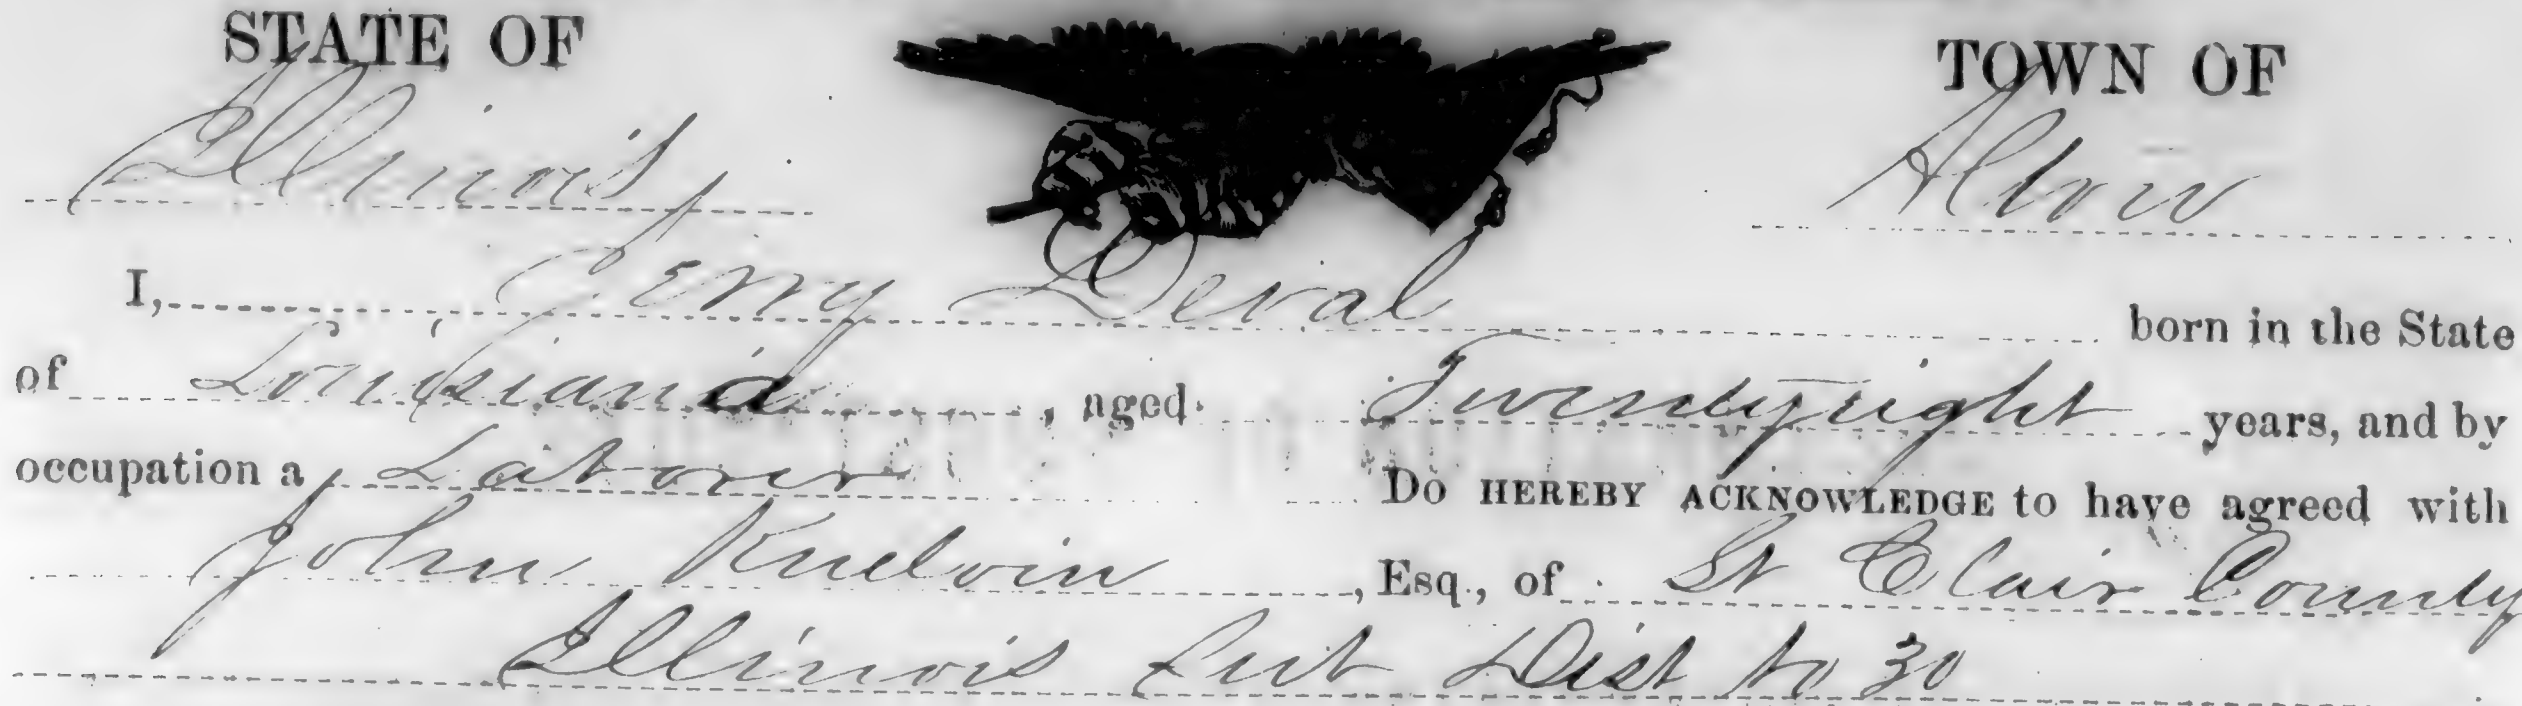 STATE OF TOWN OF
Illinois Alton
I, Jerry Deval born in the State
of Louisiana, aged Twentyeight years, and by
occupation a Laborer Do HEREBY ACKNOWLEDGE to have agreed with
John , Esq., of St Clair County
Illinois Sub Dist No 30